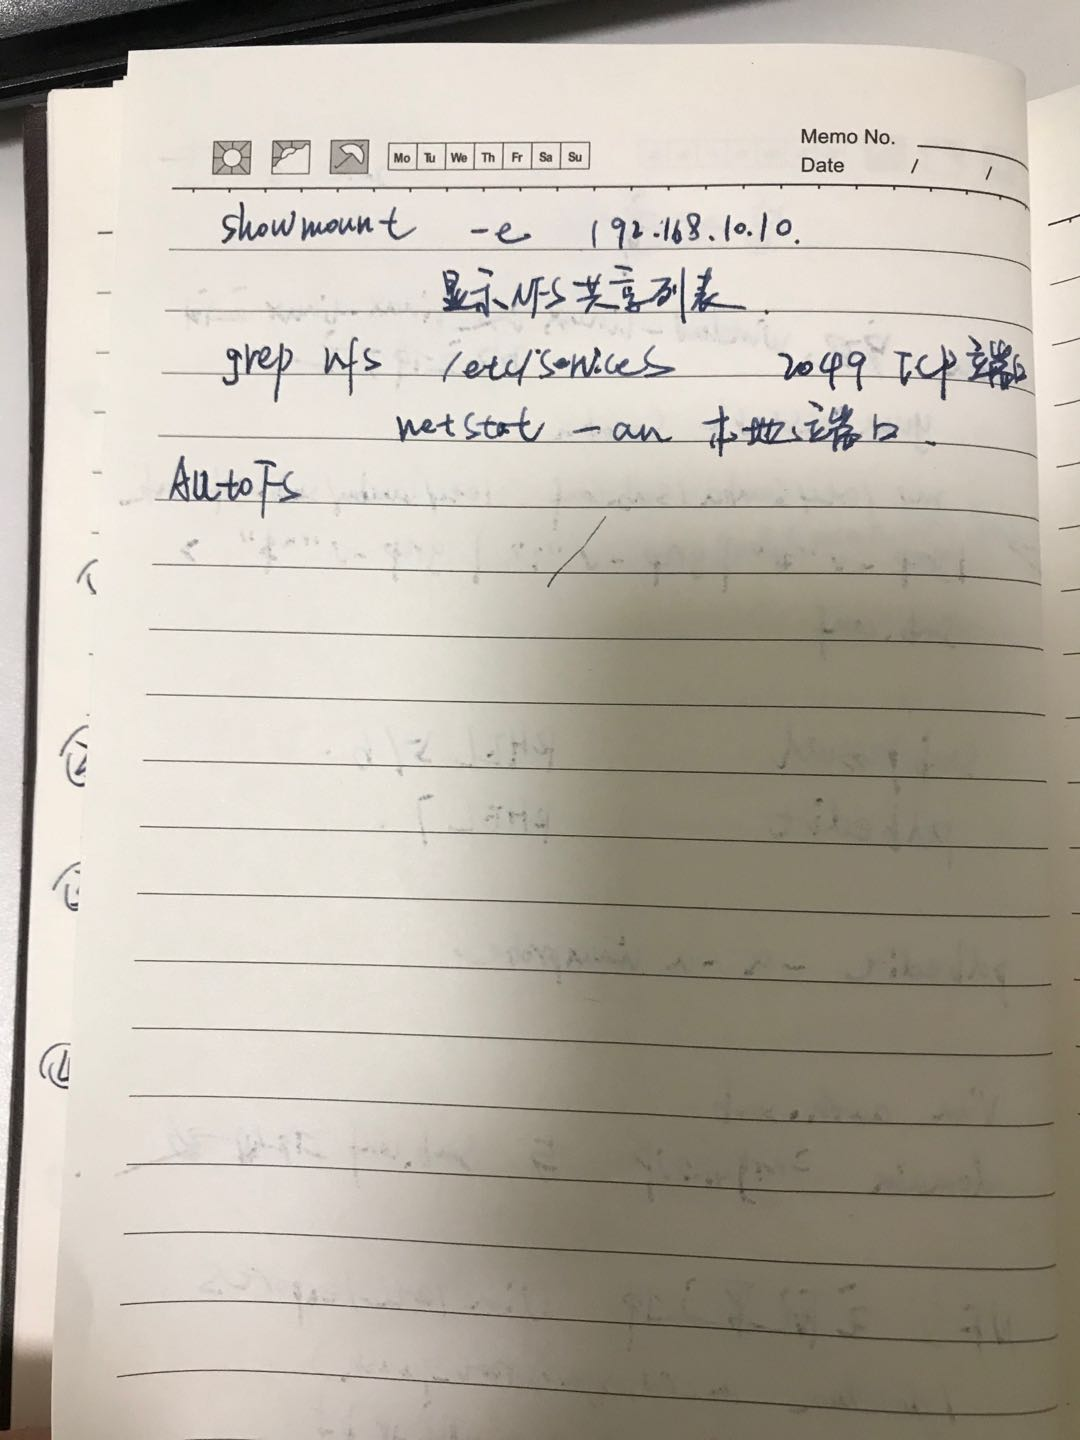 Memo No.
Mo Tu We Th Fr Sa Su
Date / /
showmount -e 192.168.10.10.
显示NFS共享列表.
grep nfs /etc/services 2049 TCP端口
netstat -an 本地端口.
AutoFS